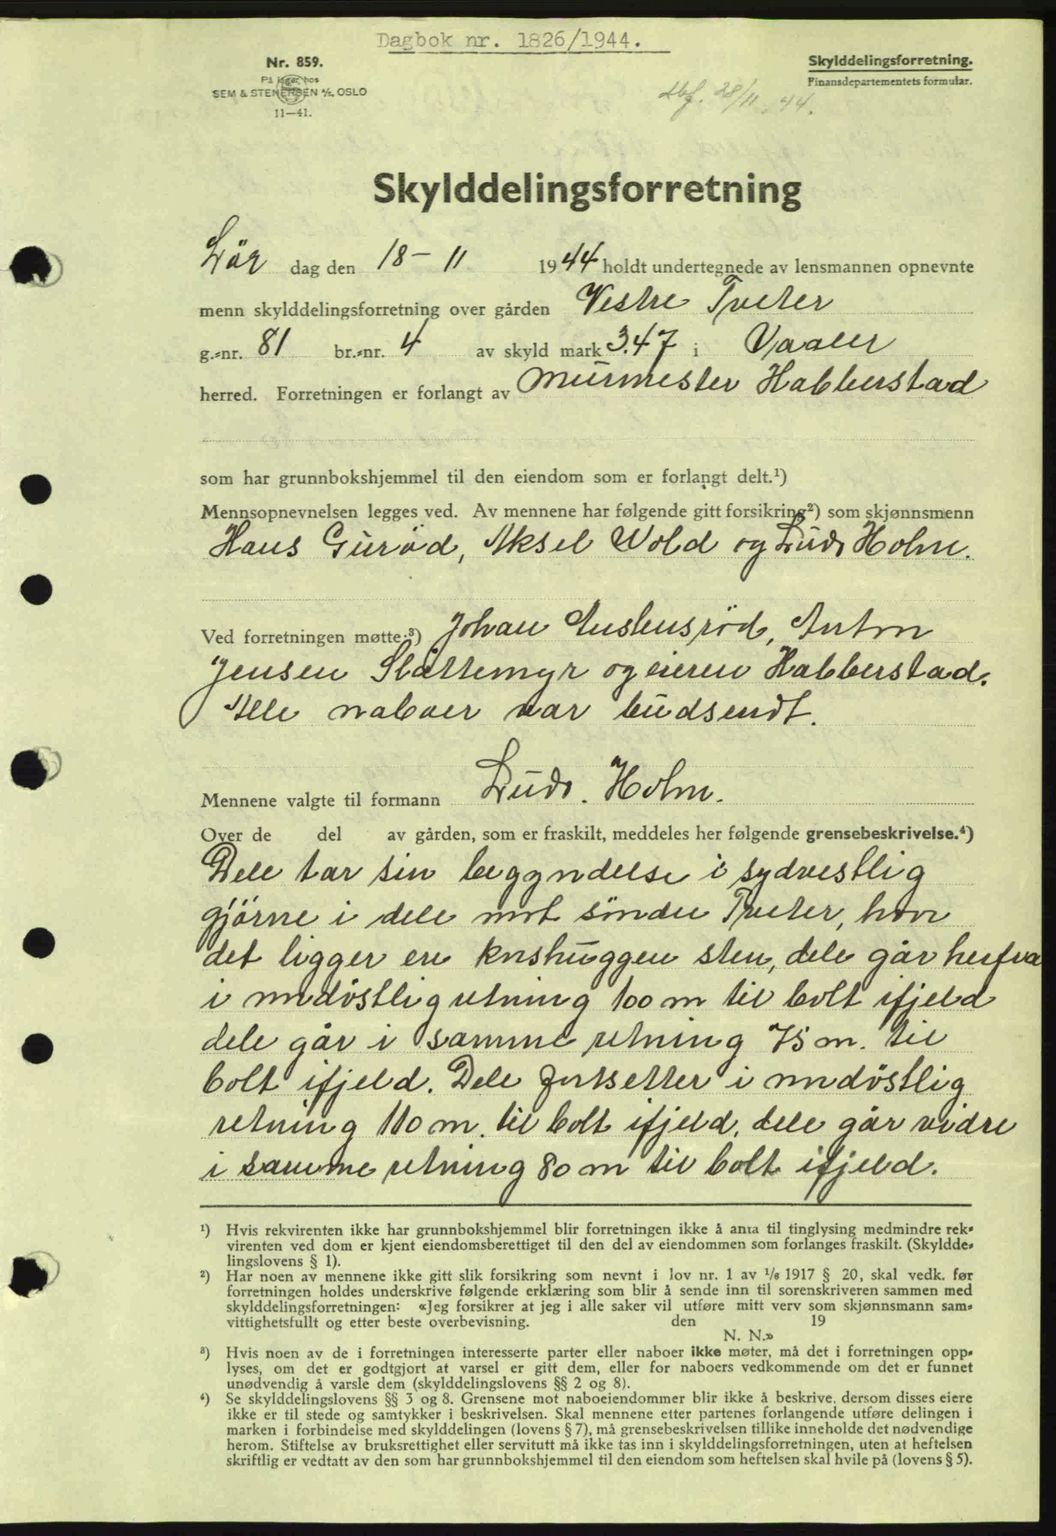 Dagbok nr. 1826/1944.
Nr. 859.
På lager hos
SEM & STENERSEN A/S, OSLO
11—41.
Skylddelingsforretning.
Finansdepartementets formular.
28/11.44.
Skylddelingsforretning
Lør dag den 18-11 1944 holdt undertegnede av lensmannen opnevnte
menn skylddelingsforretning over gården Vestre Tveter
g.-nr. 81 br.-nr. 4 av skyld mark 3.47 i Vaaler
herred. Forretningen er forlangt av murmester Habberstad
som har grunnbokshjemmel til den eiendom som er forlangt delt.¹)
Mennsopnevnelsen legges ved. Av mennene har følgende gitt forsikring²) som skjønnsmenn
Hans Gurød, Aksel Wold og Ludv Holm.
Ved forretningen møtte³) Johan Anton
Jensen Slåttemyr og eieren Habberstad.
Alle naboer var budsendt.
Mennene valgte til formann Ludv. Holm.
Over de del av gården, som er fraskilt, meddeles her følgende grensebeskrivelse.⁴)
Dele tar sin begyndelse i sydvestlig
gjørne i dele mot søndre Tveter, hvor
det ligger en korshuggen sten, dele går herfra
i nordøstlig retning 100 m til bolt ifjeld
dele går i samme retning 75 m. til
bolt ifjeld. Dele fortsetter i nordøstlig
retning 110 m. til bolt ifjeld, dele går vidre
i samme retning 80 m til bolt ifjeld.
¹) Hvis rekvirenten ikke har grunnbokshjemmel blir forretningen ikke å anta til tinglysing medmindre rek-
virenten ved dom er kjent eiendomsberettiget til den del av eiendommen som forlanges fraskilt. (Skyldde-
lingslovens § 1).
²) Har noen av mennene ikke gitt slik forsikring som nevnt i lov nr. 1 av 1/6 1917 § 20, skal vedk. før
forretningen holdes underskrive følgende erklæring som blir å sende inn til sorenskriveren sammen med
skylddelingsforretningen: «Jeg forsikrer at jeg i alle saker vil utføre mitt verv som skjønnsmann sam-
vittighetsfullt og etter beste overbevisning. den 19
N. N.»
³) Hvis noen av de i forretningen interesserte parter eller naboer ikke møter, må det i forretningen opp-
lyses, om det er godtgjort at varsel er gitt dem, eller for naboers vedkommende om det er funnet
unødvendig å varsle dem (skylddelingslovens §§ 2 og 8).
⁴) Se skylddelingslovens §§ 3 og 8. Grensene mot naboeiendommer blir ikke å beskrive, dersom disses eiere
ikke er til stede og samtykker i beskrivelsen. Skal mennene etter partenes forlangende utføre delingen i
marken i forbindelse med skylddelingen (lovens § 7), må grensebeskrivelsen tillike inneholde det nødvendige
herom. Stiftelse av bruksrettighet eller servitutt må ikke tas inn i skylddelingsforretningen, uten at heftelsen
skriftlig er vedtatt av den som har grunnbokshjemmel til den eiendom som heftelsen skal hvile på (lovens § 5).